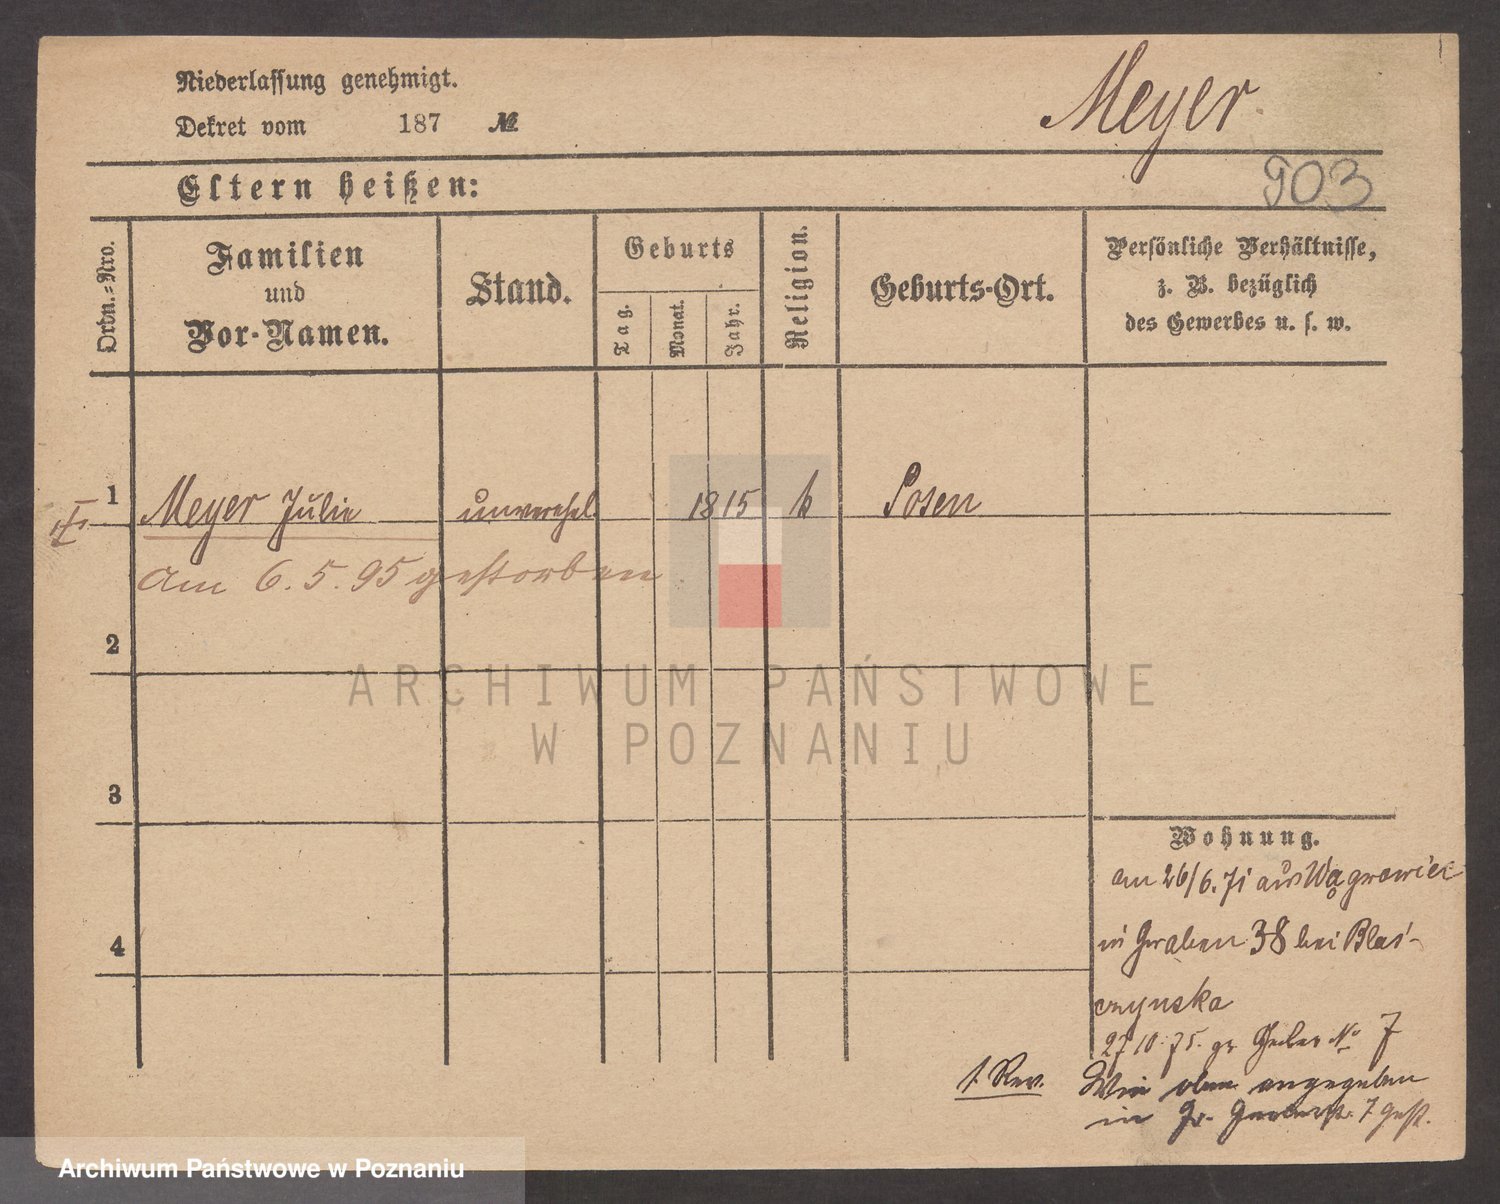 Niederlassung genehmigt.
Dekret vom 187 №
Meyer
903
Eltern heißen:
Ordn.-Nro.
Familien
und
Vor-Namen.
Stand.
Geburts
Tag.
Monat.
Jahr.
Religion.
Geburts-Ort.
Persönliche Verhältnisse,
z. B. bezüglich
des Gewerbes u. s. w.
1 Meyer Julie unverehel. 1815 k Posen
am 6.5.95 gestorben
2
3
4
ARCHIWUM PAŃSTWOWE
W POZNANIU
Wohnung.
am 26/6.71 aus Wągrowiec
in Graben 38 bei Blas-
czynska
27 10. 75. gr Gerber No 7
1. Rev. Wie oben angegeben
in Gr. Gerberstr. 7 gest.
Archiwum Państwowe w Poznaniu